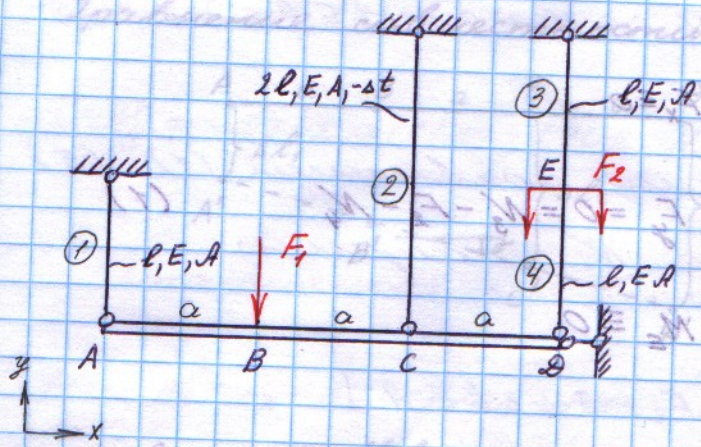 2l, E, A, -Δt
3
l, E, A
E
F₂
2
1
l, E, A
F₁
4
l, E A
a
a
a
A
B
C
D
y
x